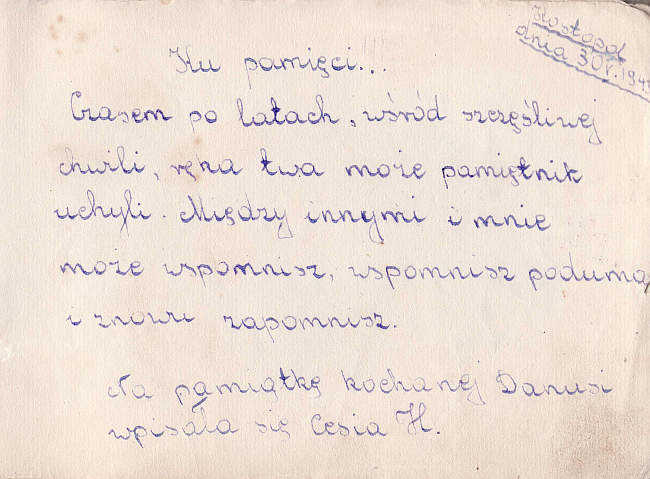 dnia 30.V.194
Ku pamięci...
Czasem po latach, wśród szczęśliwej
chwili, ręka twa może pamiętnik
uchyli. Między innymi i mnie
może wspomnisz, wspomnisz poduma
i znowu zapomnisz.
Na pamiątkę kochanej Danusi
wpisała się Cesia H.